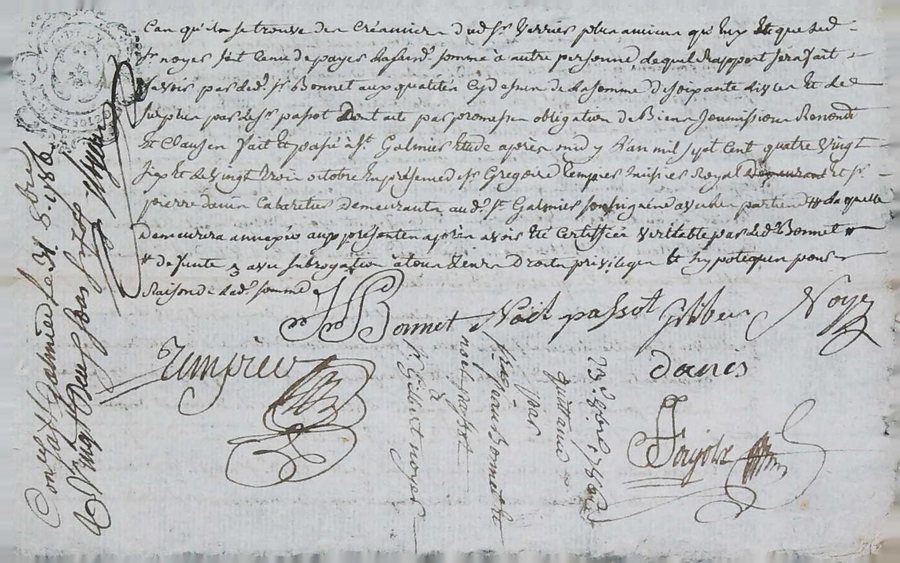 Cas qu'il se trouve des Créanciers dud. Sr. Verrier plus anciens qu'eux Et que led.
Sr. noyer soit tenu de payer lad. somme à autre personne, lequel Rapport sera fait
savoir par led. Sr. Bonnet aux qualités Cydessus de la somme de soixante dix Et le
surplus par led. Sr. passot Dont acte par promesse obligation de Biens soumissions Renonc.
Et Clauses fait Et passé à St. Galmier Etude après midy L'an mil sept Cent quatre Vingt
six Et le Vingt trois octobre En présence de Sr. Gregoire huissier Royal Demeurant Et Sr.
pierre Cabaretier demeurants aud. St. Galmier soussignés avec les parties # laquelle
Demeurera annexée aux présentes après avoir Eté Certiffiée Véritable par led. Bonnet #
# de suite & avec subrogation à tous leurs Droits privileges Et hypoteques pour
Raison de lad. somme
Bonnet Noël passot Gilber Noyer
Fajole
Con. à St Galmier le 31 8bre 1786
R. Vingt Deux sols
23 8bre 1786
quittance
par
Sr. Bonnet Et
noel passot
à
Sr. Gilbert noyer